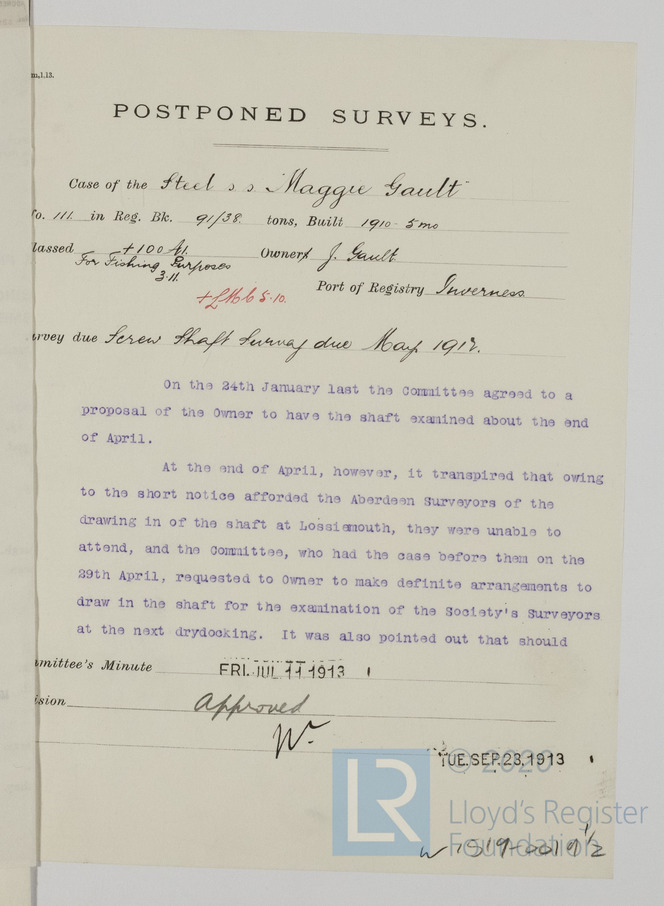 m.1.13.
POSTPONED SURVEYS.
Case of the Steel s s Maggie Gault
o. 111. in Reg. Bk. 91/38. tons, Built 1910-5mo
lassed +100A1. Owners J. Gault
For Fishing Purposes
3.11.
+LMC 5.10. Port of Registry Inverness
urvey due Screw Shaft Survey due May 1912.
On the 24th January last the Committee agreed to a
proposal of the Owner to have the shaft examined about the end
of April.
At the end of April, however, it transpired that owing
to the short notice afforded the Aberdeen Surveyors of the
drawing in of the shaft at Lossiemouth, they were unable to
attend, and the Committee, who had the case before them on the
29th April, requested to Owner to make definite arrangements to
draw in the shaft for the examination of the Society's Surveyors
at the next drydocking. It was also pointed out that should
mmittee's Minute FRI. JUL 11 1913
ision Approved
TUE. SEP. 23. 1913
© 2020
LR
Lloyd's Register
Foundation